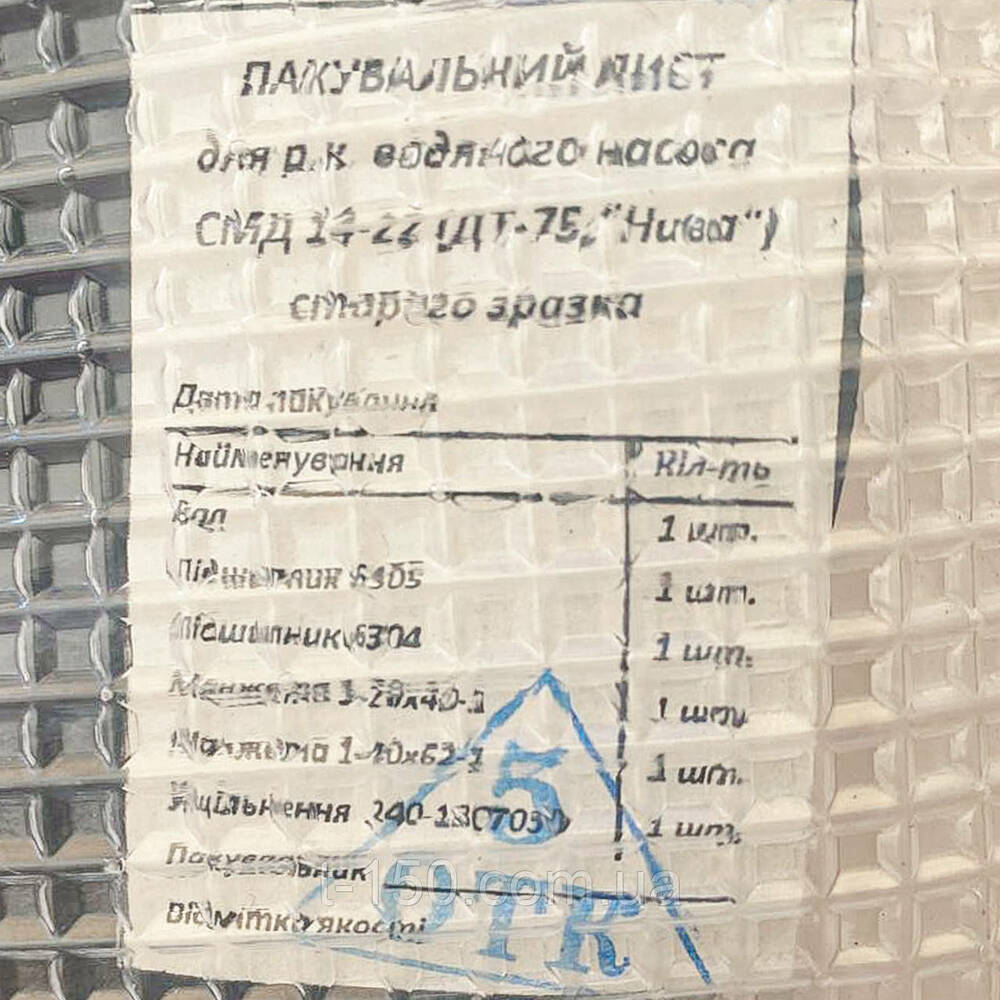 ПАКУВАЛЬНИЙ ЛИСТ
для р.к водяного насоса
СМД 14-22 (ДТ-75, "Нива")
старого зразка
Дата пакування
Найменування Кіл-ть
Вал 1 шт.
Підшипник 6305 1 шт.
Підшипник 6304 1 шт.
Манжета 1-20х40-1 1 шт.
Манжета 1-40х62-1 1 шт.
Ущільнення 240-1307030 1 шт.
Пакувальник
Відмітка якості
5
ОТК
t-150.com.ua